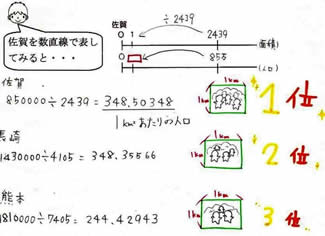 佐賀を数直線で表し
てみると・・・
佐賀 ÷2439
0 1 2439 面積
0 855 (人口)
佐賀
850000÷2439=348.50348
1km²あたりの人口
1km
1km
1位
長崎
1430000÷4105=348.35566
1km
1km
2位
熊本
1810000÷7405=244.42943
1km
1km
3位